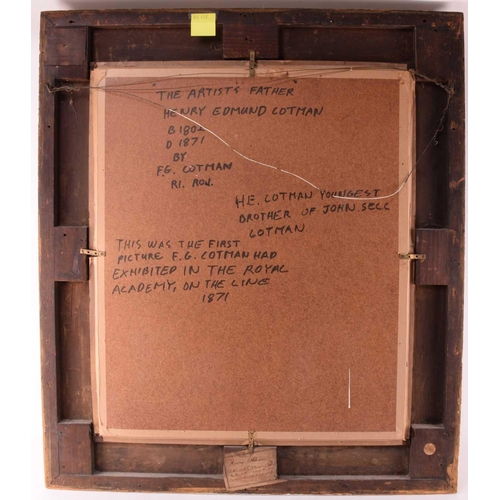 THE ARTISTS FATHER
HENRY EDMUND COTMAN
B 1802
D 1871
BY
F.G. COTMAN
RI. ROI.
H.E. COTMAN YOUNGEST
BROTHER OF JOHN SELL
COTMAN
THIS WAS THE FIRST
PICTURE F.G. COTMAN HAD
EXHIBITED IN THE ROYAL
ACADEMY, ON THE LINE
1871